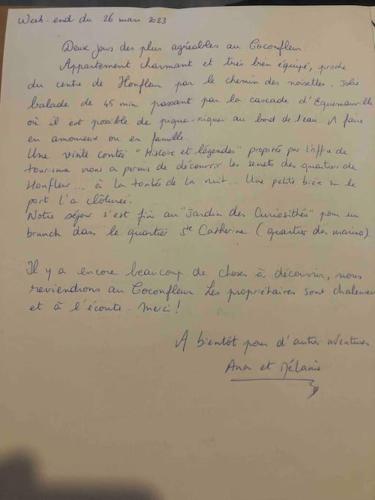 Week-end du 26 mars 2023
Deux jours des plus agréables au Coconfleur
Appartement charmant et très bien équipé, proche
du centre de Honfleur par le chemin des noisettes. Jolie
balade de 45 min passant par la cascade d'Equemauville
où il est possible de pique-niquer au bord de l'eau. A faire
en amoureux ou en famille.
Une visite contée "Histoire et légendes" proposée par l'office de
tourisme nous a permis de découvrir les secrets des quartiers de
Honfleur... à la tombée de la nuit... Une petite bière sur le
port l'a clôturée.
Notre séjour s'est fini au "Jardin des Curiosités" pour un
brunch dans le quartier Ste Catherine (quartier des marins).
Il y a encore beaucoup de choses à découvrir, nous
reviendrons au Coconfleur. Les propriétaires sont chaleureux
et à l'écoute. Merci!
A bientôt pour d'autres aventures
et Mélanie